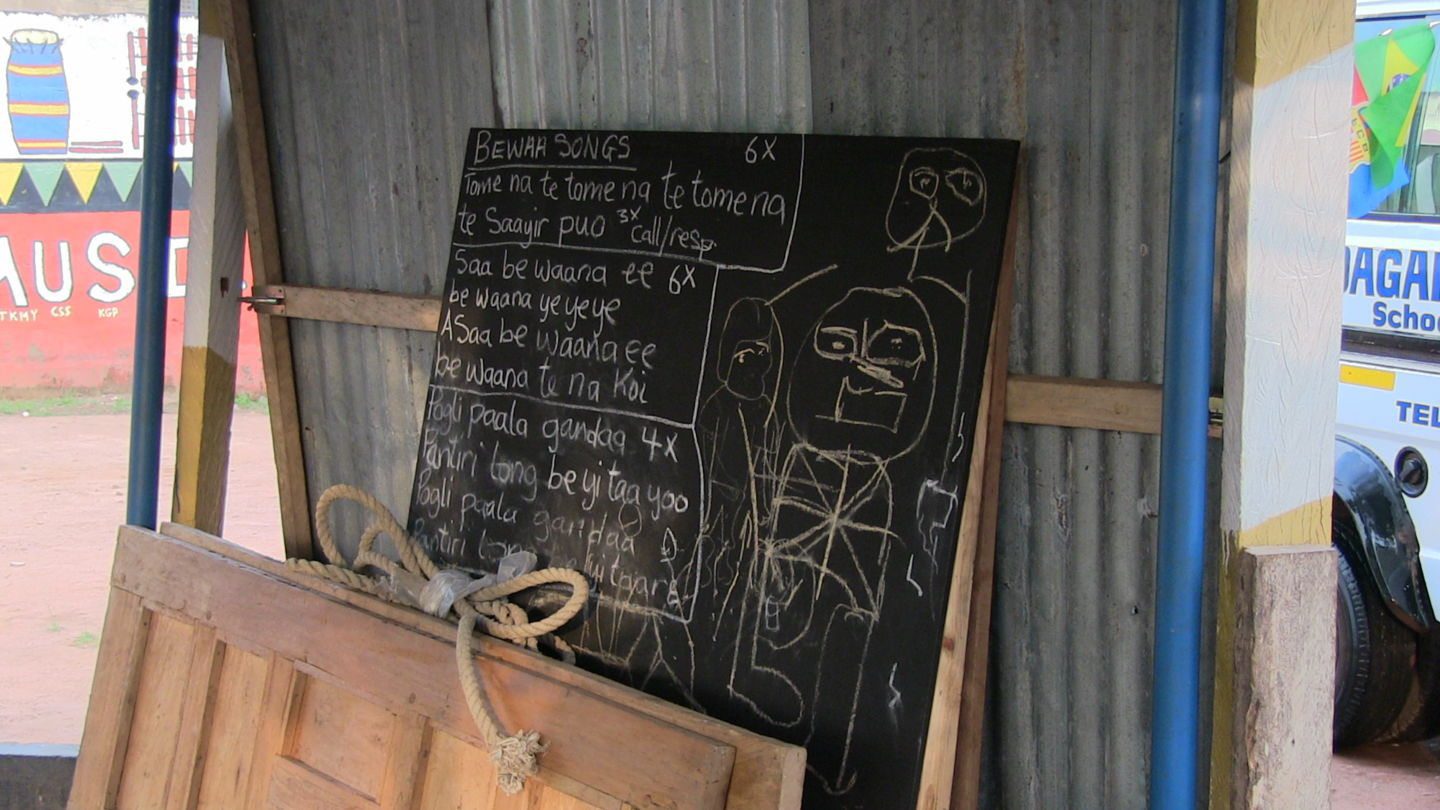 BEWAA SONGS 6X
Tome na te tome na te tome na
te Saagir puo 3x call/resp.
Saa be waana ee 6X
be waana ye ye ye
A Saa be waana ee
be waana te na Koi
Pogli paala gandaa 4X
Pantiri long be yi taa yoo
Pogli paala gandaa
Pantiri
MUS
TKMY CSS KGP
DAGA
Schoo
TEL